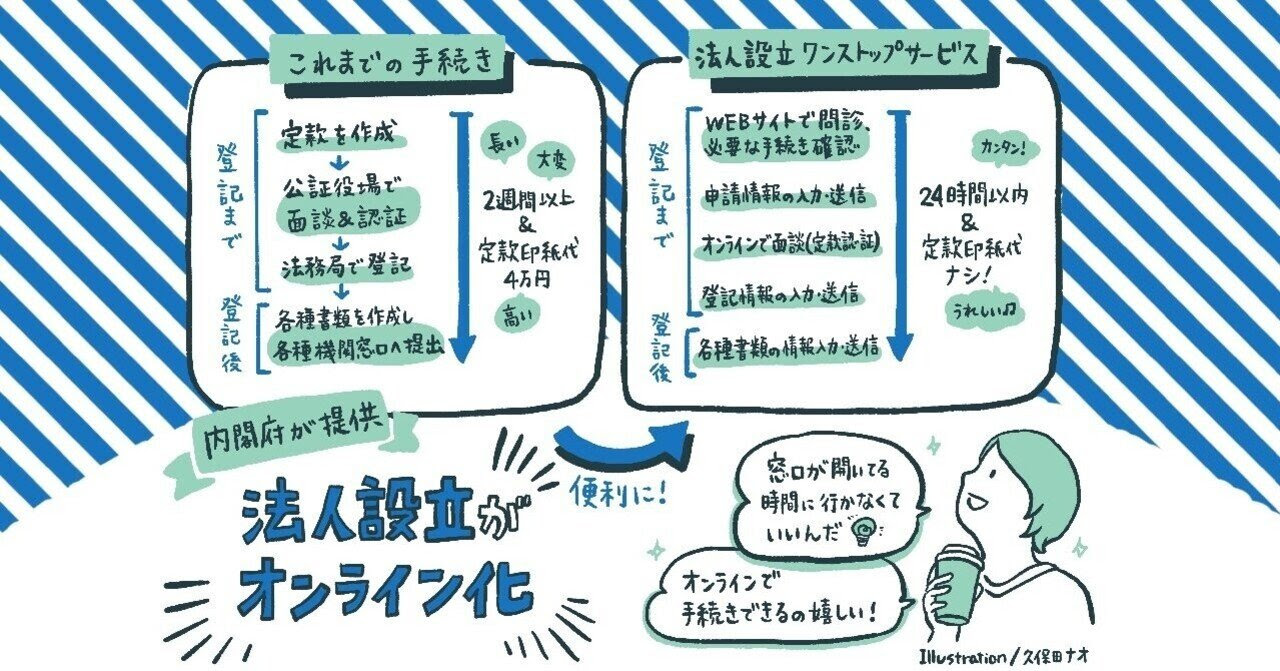 これまでの手続き
登記まで
定款を作成
公証役場で
面談&認証
法務局で登記
登記後
各種書類を作成し
各種機関窓口へ提出
長い
大変
2週間以上
&
定款印紙代
4万円
高い
法人設立ワンストップサービス
登記まで
WEBサイトで問診、
必要な手続き確認
申請情報の入力・送信
オンラインで面談(定款認証)
登記情報の入力・送信
登記後
各種書類の情報入力・送信
カンタン!
24時間以内
&
定款印紙代
ナシ!
うれしい♫
内閣府が提供
法人設立が
オンライン化
便利に!
窓口が開いてる
時間に行かなくて
いいんだ
オンラインで
手続きできるの嬉しい!
Illustration/久保田ナオ